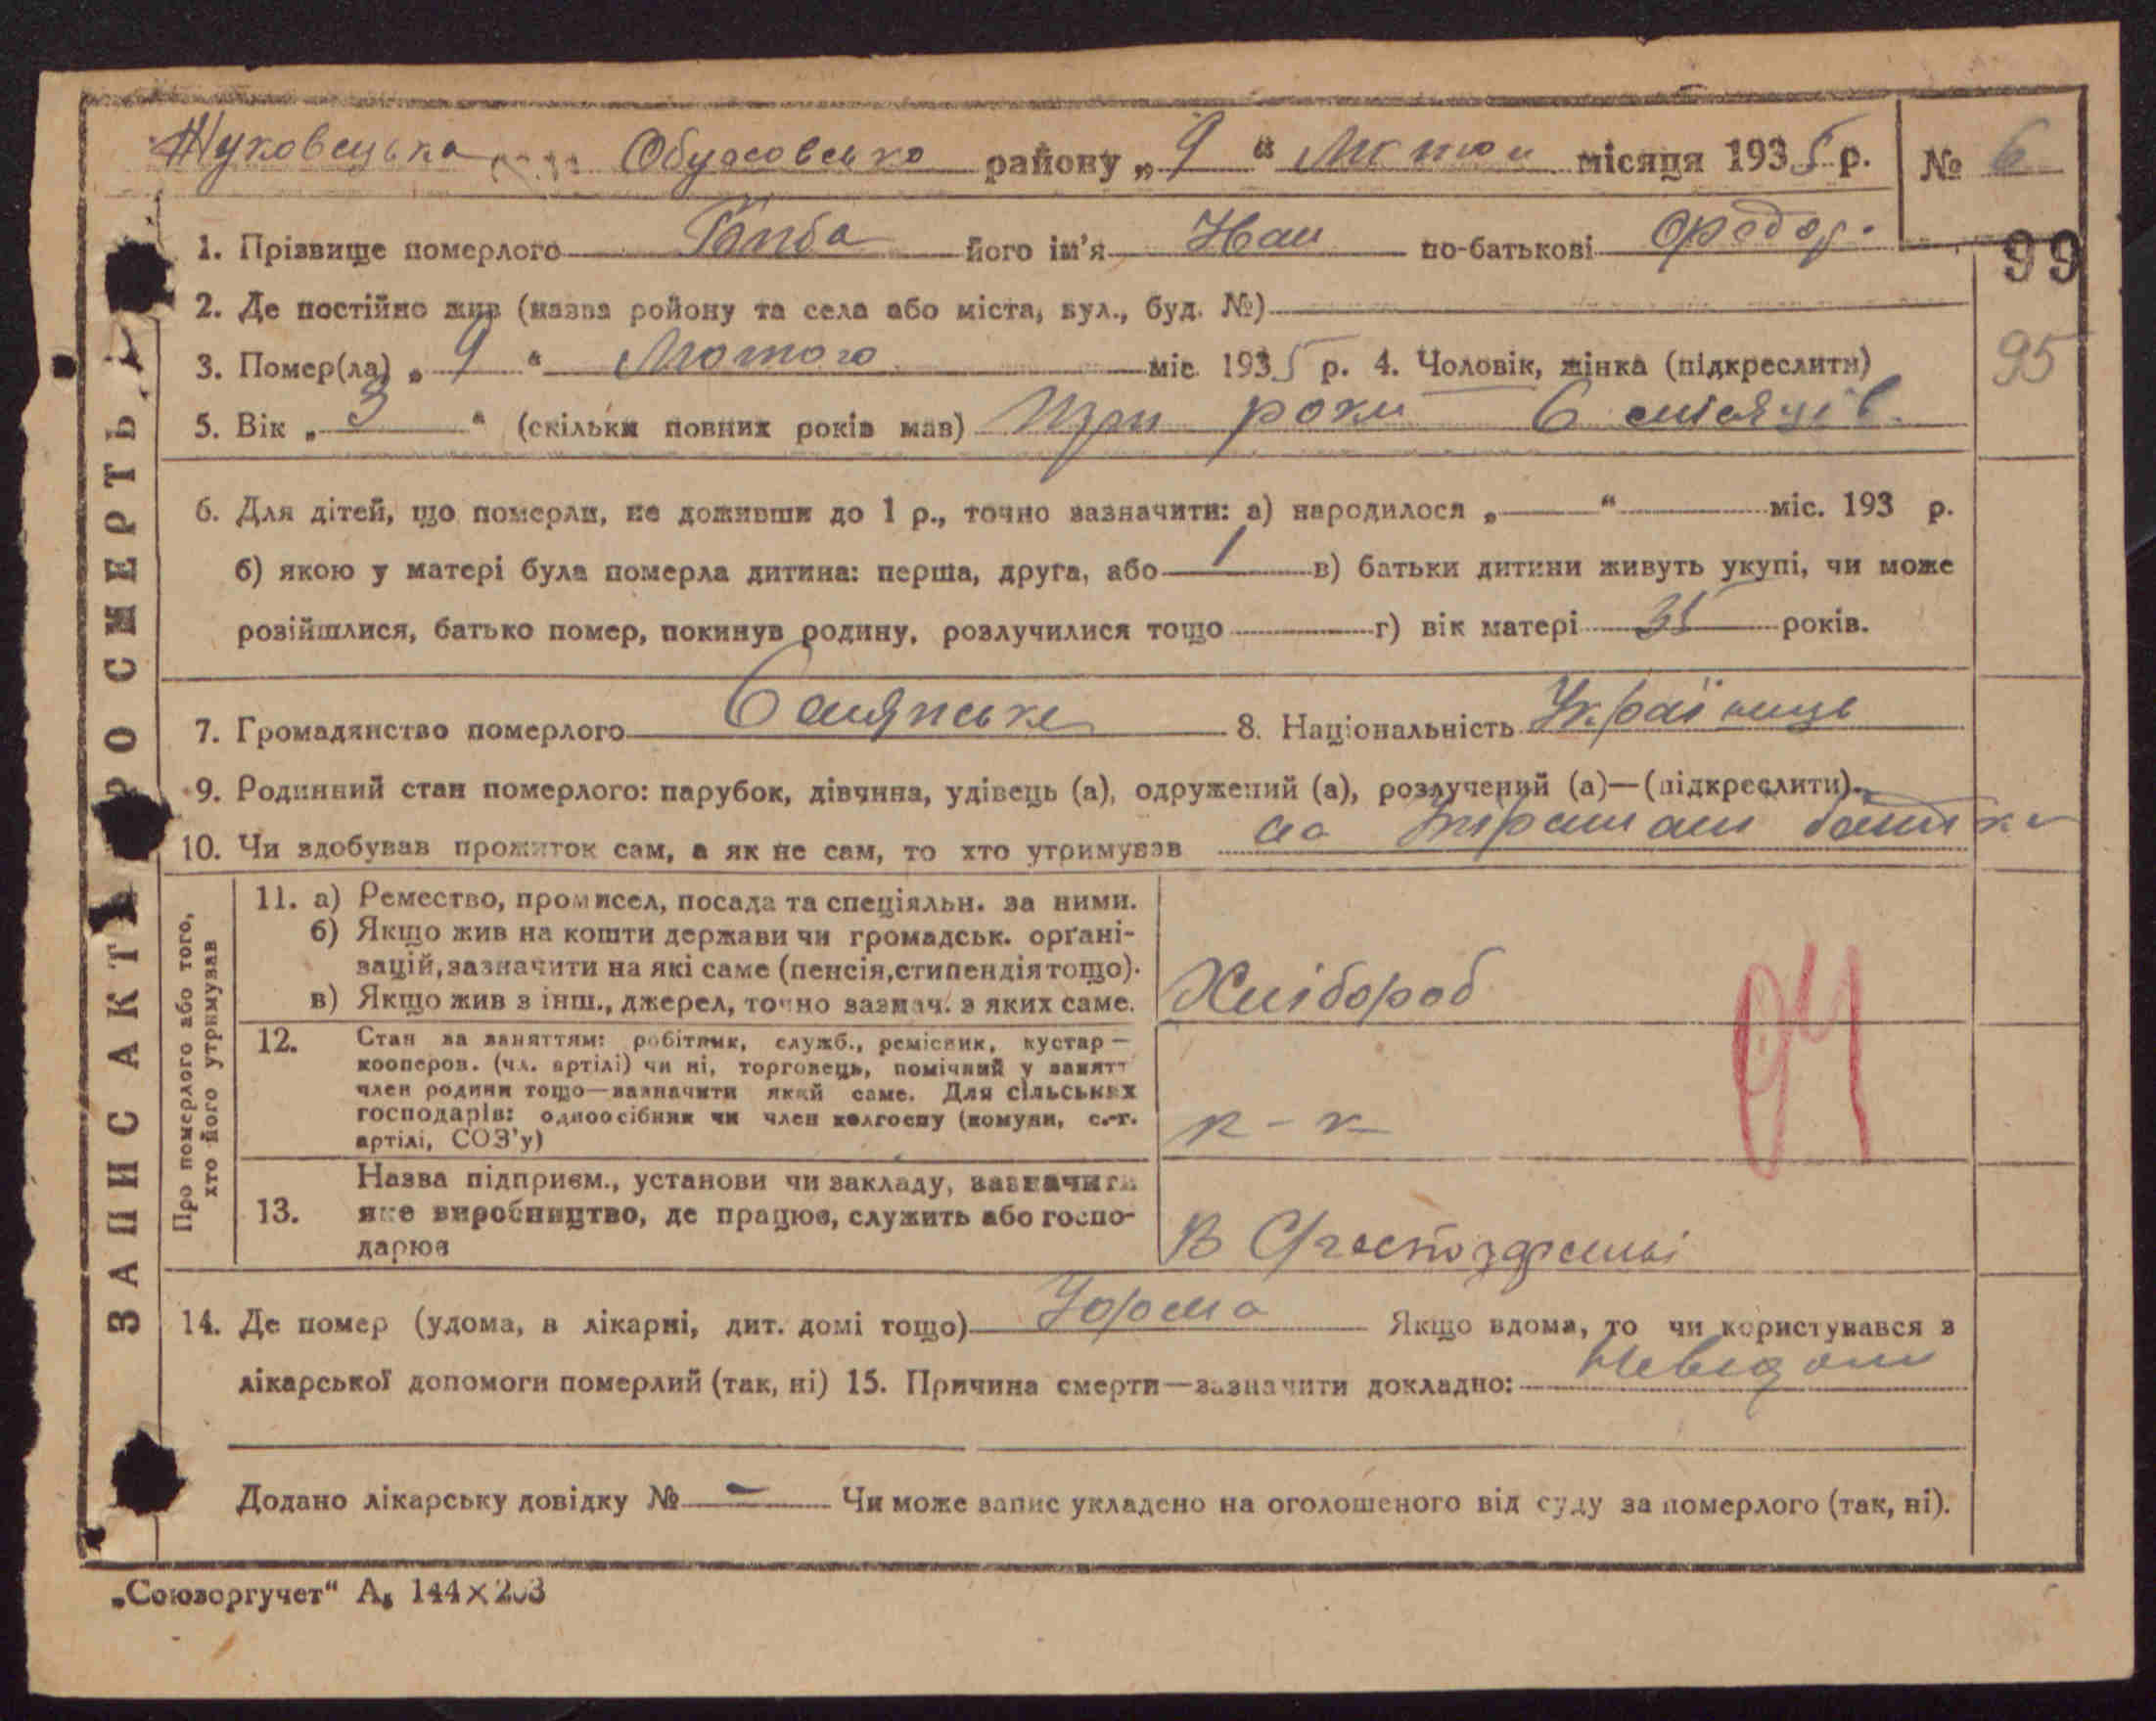 Жуковецька Обуховсько району „ 9 “ місяця 1935 р. № 6
99
1. Прізвище померлого його ім'я Іван по-батькові Федор.
2. Де постійно жив (назва ройону та села або міста, вул., буд. №)
3. Помер(ла) „ 9 “ Лютого міс. 1935 р. 4. Чоловік, жінка (підкреслити)
95
5. Вік „ 3 “ (скільки повних років мав) Три роки 6 місяців.
6. Для дітей, що померли, не доживши до 1 р., точно зазначити: а) народилося „ “ міс. 193 р.
б) якою у матері була померла дитина: перша, друга, або 1 в) батьки дитини живуть укупі, чи може
розійшлися, батько помер, покинув родину, розлучилися тощо г) вік матері 35 років.
7. Громадянство померлого 8. Національність Українець
9. Родинний стан померлого: парубок, дівчина, удівець (а), одружений (а), розлучений (а)—(підкреслити).
10. Чи здобував прожиток сам, а як не сам, то хто утримував на батьки
ЗАПИС АКТА ПРО СМЕРТЬ
Про померлого або того,
хто його утримував
11. а) Ремество, промисел, посада та спеціяльн. за ними.
б) Якщо жив на кошти держави чи громадськ. орґані-
зацій, зазначити на які саме (пенсія, стипендія тощо).
в) Якщо жив з інш., джерел, точно зазнач. з яких саме.
Хлібороб
94
12. Стан за заняттям: робітник, служб., ремісник, кустар—
кооперов. (чл. артілі) чи ні, торговець, помічний у занятт
член родини тощо—зазначити який саме. Для сільських
господарів: одноосібник чи член колгоспу (комуни, с.-г.
артілі, СОЗ'у)
к-к
13. Назва підприєм., установи чи закладу, зазначити
яке виробництво, де працює, служить або госпо-
дарює
В
14. Де помер (удома, в лікарні, дит. домі тощо) Удома Якщо вдома, то чи користувався з
лікарської допомоги померлий (так, ні) 15. Причина смерти—зазначити докладно: Невідом
Додано лікарську довідку № — Чи може запис укладено на оголошеного від суду за померлого (так, ні).
„Союзоргучет“ А₅ 144×203